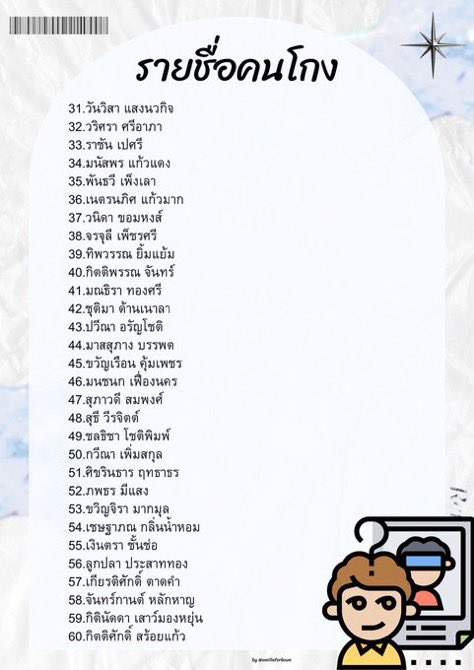 รายชื่อคนโกง
31.วันวิสา แสงนวกิจ
32.วริศรา ศรีอาภา
33.ราชัน เปศรี
34.มนัสพร แก้วแดง
35.พันธวี เพ็งเลา
36.เนตรนภิศ แก้วมาก
37.วนิดา ขอมหงส์
38.จรจุลี เพ็ชรศรี
39.ทิพวรรณ ยิ้มแย้ม
40.กิตติพรรณ จันทร์
41.มณธิรา ทองศรี
42.ชุติมา ด้านเนาลา
43.ปวีณา อรัญโชติ
44.มาสสุภาง บรรพต
45.ขวัญเรือน คุ้มเพชร
46.มนชนก เฟื่องนคร
47.สุภาวดี สมพงศ์
48.สุธี วีรจิตต์
49.ชลธิชา โชติพิมพ์
50.กวีณา เพิ่มสกุล
51.ศิขรินธาร ฤทธาธร
52.ภพธร มีแสง
53.ขวิญจิรา มากมูล
54.เชษฐาภณ กลิ่นน้ำหอม
55.เงินตรา ชั้นช่อ
56.ลูกปลา ประสาททอง
57.เกียรติศักดิ์ ตาดคำ
58.จันทร์กานต์ หลักหาญ
59.กิตินัดดา เสาว์มองหยุ่น
60.กิตติศักดิ์ สร้อยแก้ว
by @smileforboun